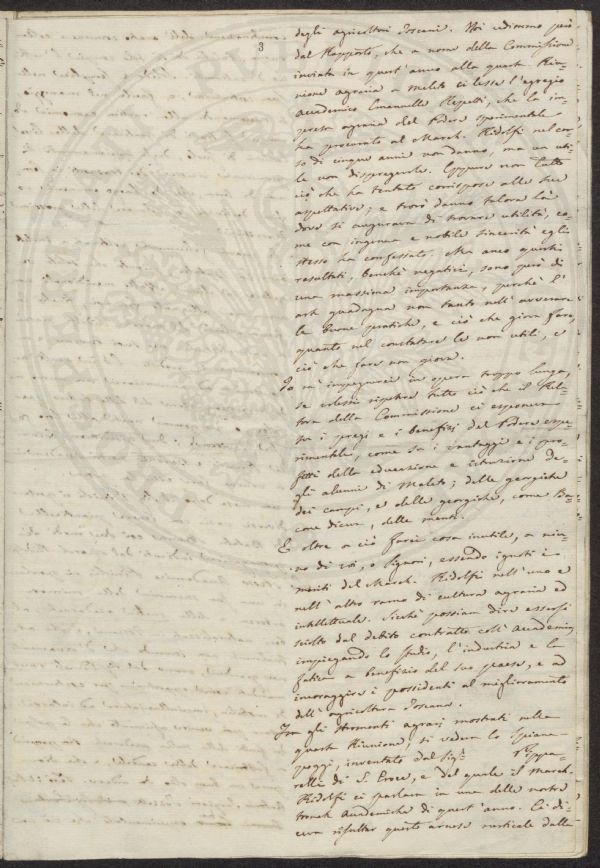 3
degli agricoltori Toscani. Noi udimmo però
dal Rapporto, che a nome della Commissione
inviata in quest'anno alla quarta Riu-
nione agraria a Meleto ci lesse l'egregio
accademico Emanuelle Repetti, che la im-
presa agraria del Podere sperimentale
ha procurato al March. Ridolfi nel cor-
so di cinque anni non danno, ma un uti-
le non dispregevole. Eppure non tutto
ciò che ha tentato corrispose alle sue
aspettative; e trovò danno talora là
dove si augurava di trovare utilità, co-
me con ingenua e nobile sincerità egli
stesso ha confessato. Ma anco questi
resultati, benchè negativi, sono però di
una massima importanza, perchè l'
arte guadagna non tanto nell'avverare
le buone pratiche, e ciò che giova fare,
quanto nel constatare le non utili, e
ciò che fare non giova.
Io m'impegnerei in opera troppo lunga,
se volessi ripetere tutto ciò che il Rela-
tore della Commissione ci esponeva
su i pregi e i benefizi del Podere spe-
rimentale, come su i vantaggi e i pro-
fitti della educazione e istruzione de-
gli alunni di Meleto; delle georgiche
dei campi, e delle georgiche, come Ba-
cone dicea, delle menti.
E oltre a ciò farei cosa inutile, a niu-
no di voi, o Signori, essendo ignoti i
meriti del March. Ridolfi nell'uno e
nell'altro ramo di cultura agraria ed
intellettuale. Sicchè possiam dire essersi
sciolto dal debito contratto coll'Accademia
impiegando lo studio, l'industria e la
fatica a benefizio del suo paese, e ad
incoraggire i possidenti al miglioramento
dell'agricoltura Toscana.
Fra gli stromenti agrarj mostrati nella
quarta Riunione, si vedeva lo Spiana-
poggi, inventato dal Sigr. Ippa-
relli di S. Croce, e del quale il March.
Ridolfi ci parlava in una delle nostre
tornate accademiche di quest'anno. Ci di-
ceva risultar questo arnese rusticale dalla